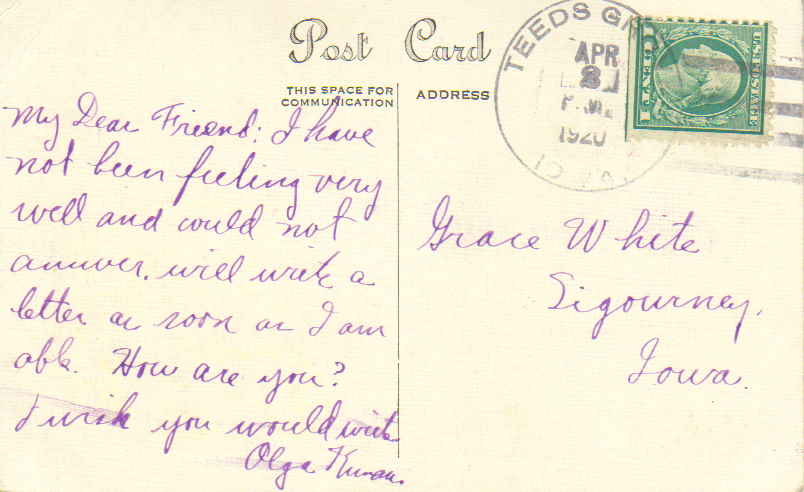 Post Card
THIS SPACE FOR
COMMUNICATION
ADDRESS
TEEDS
APR
1920
My Dear Friend: I have
not been feeling very
well and could not
answer. will write a
letter as soon as I am
able. How are you?
I wish you would write
Olga
Grace White
Sigourney,
Iowa.